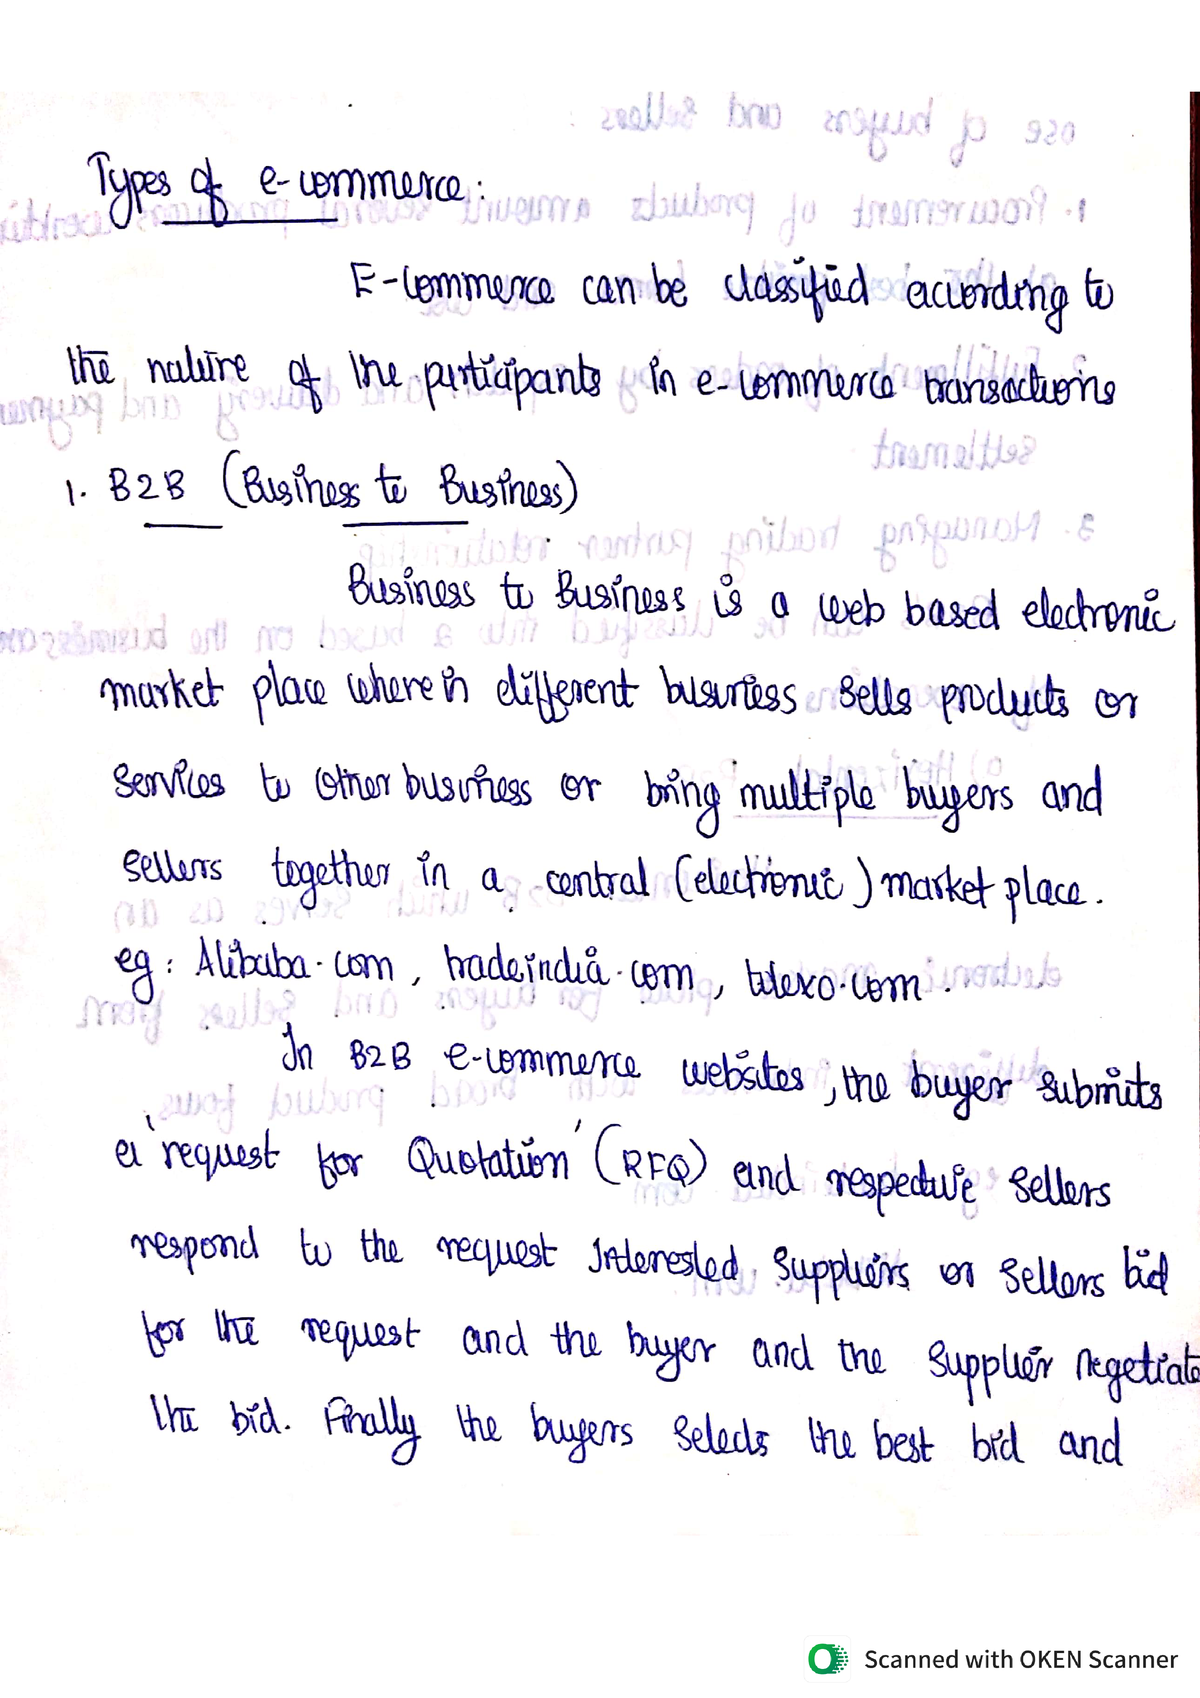 Types of e-commerce:
E-Commerce can be classified according to
the nature of the participants in e-commerce transactions
1. B2B (Business to Business)
Business to Business is a web based electronic
market place wherein different business sells products or
services to other business or bring multiple buyers and
sellers together in a central (electronic) market place.
eg: Alibaba.com, tradeindia.com, telexo.com.
In B2B e-commerce websites, the buyer submits
a 'request for Quotation' (RFQ) and respective sellers
respond to the request Interested suppliers or sellers bid
for the request and the buyer and the supplier negetiate
the bid. Finally the buyers selects the best bid and
Scanned with OKEN Scanner